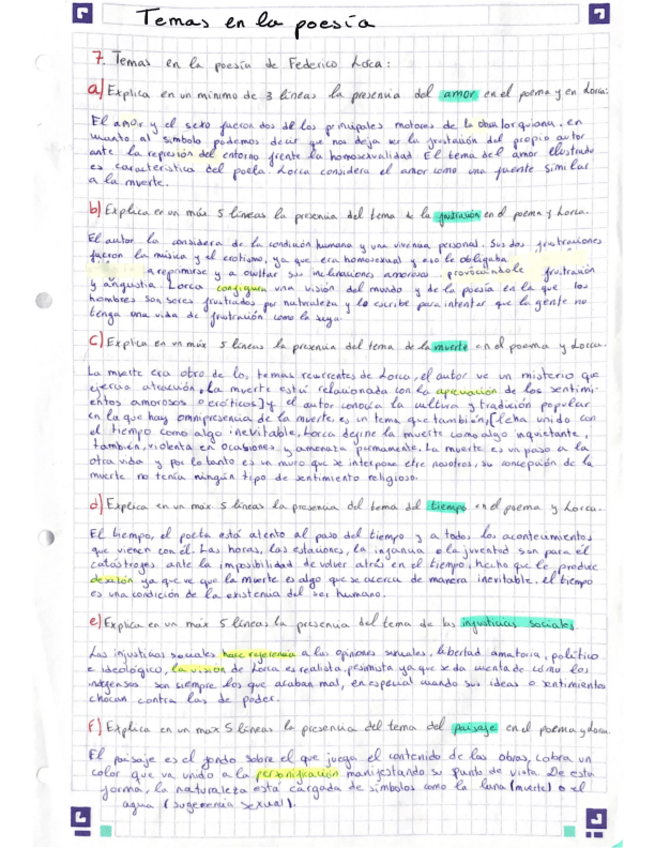 Temas en la poesía
7. Temas en la poesía de Federico Lorca:
a) Explica en un mínimo de 3 líneas la presencia del amor en el poema y en Lorca:
El amor y el sexo fueron dos de los principales motores de la obra lorquiana. en
cuanto al símbolo podemos decir que nos deja ver la frustación del propio autor
ante la represión del entorno frente la homosexualidad El tema del amor frustrado
es característica del poeta. Lorca considera el amor como una fuente similar
a la muerte.
b) Explica en un máx 5 líneas la presencia del tema de la frustración en el poema y Lorca.
El autor la considera de la condición humana y una vivencia personal. Sus dos frustraciones
fueron la música y el erotismo, ya que era homosexual y eso le obligaba
a reprimirse y a ocultar sus inclinaciones amorosas provocándole frustración
y angustia. Lorca configura una visión del mundo y de la poesía en la que los
hombres son seres frustrados por naturaleza y lo escribe para intentar que la gente no
tenga una vida de frustración como la suya.
c) Explica en un máx 5 líneas la presencia del tema de la muerte en el poema y Lorca.
La muerte era otro de los temas recurrentes de Lorca, el autor ve un misterio que
ejercia atracción, la muerte está relacionada con la de los sentimi-
entos amorosos o eróticos] y el autor conocía la cultura y tradición popular
en la que hay omnipresencia de la muerte, es un tema que también, [le ha unido con
el tiempo como algo inevitable. Lorca define la muerte como algo inquietante,
también, violenta en ocasiones y amenaza purmamente. La muerte es un paso a la
otra vida y por lo tanto es un muro que se interpone etre nosotros, su concepción de la
muerte no tenía ningún tipo de sentimiento religioso.
d) Explica en un máx 5 líneas la presencia del tema del tiempo en el poema y Lorca.
El tiempo, el poeta está atento al paso del tiempo y a todos los acontecimientos
que vienen con él. Las horas, las estaciones, la infancia o la juventud son para él
catástrofes ante la imposibilidad de volver atrás en el tiempo, hecho que le produce
desazón ya que ve que la muerte es algo que se acerca de manera inevitable. el tiempo
es una condición de la existencia del ser humano.
e) Explica en un máx 5 líneas la presencia del tema de las injusticias sociales
Las injusticias sociales hace referencia a las opiniones sexuales, libertad amatoria, político
e ideológico, la visión de Lorca es realista, pesimista ya que se da cuenta de cómo los
indefensos son siempre los que acaban mal, en especial cuando sus ideas o sentimientos
chocan contra las de poder.
f) Explica en un max 5 líneas la presencia del tema del paisaje en el poema y Lorca
El paisaje es el fondo sobre el que juega el contenido de las obras, cobra un
color que va unido a la personificación manifestando su punto de vista. De esta
forma, la naturaleza está cargada de símbolos como la luna (muerte) o el
agua (sugerencia sexual).